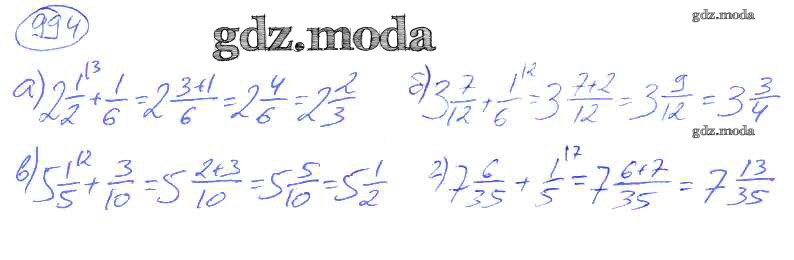 994
gdz.moda
gdz.moda
а) 2 1/2 |3 + 1/6 = 2 (3+1)/6 = 2 4/6 = 2 2/3
б) 3 7/12 + 1/6 |2 = 3 (7+2)/12 = 3 9/12 = 3 3/4
gdz.moda
в) 5 1/5 |2 + 3/10 = 5 (2+3)/10 = 5 5/10 = 5 1/2
г) 7 6/35 + 1/5 |7 = 7 (6+7)/35 = 7 13/35